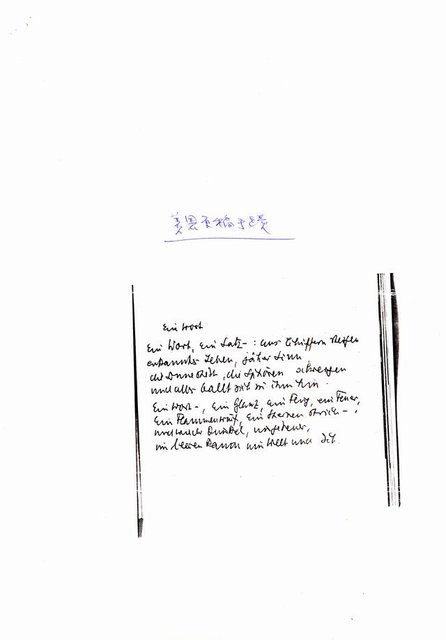 手迹
Ein Wort
Ein Wort, ein Satz -: aus Chiffren steigen
erkanntes Leben, jäher Sinn,
die Sonne steht, die Sphären schweigen
und alles ballt sich zu ihm hin.
Ein Wort -, ein Glanz, ein Flug, ein Feuer,
ein Flammenwurf, ein Sternenstrich -,
und wieder Dunkel, ungeheuer,
im leeren Raum um Welt und Ich.